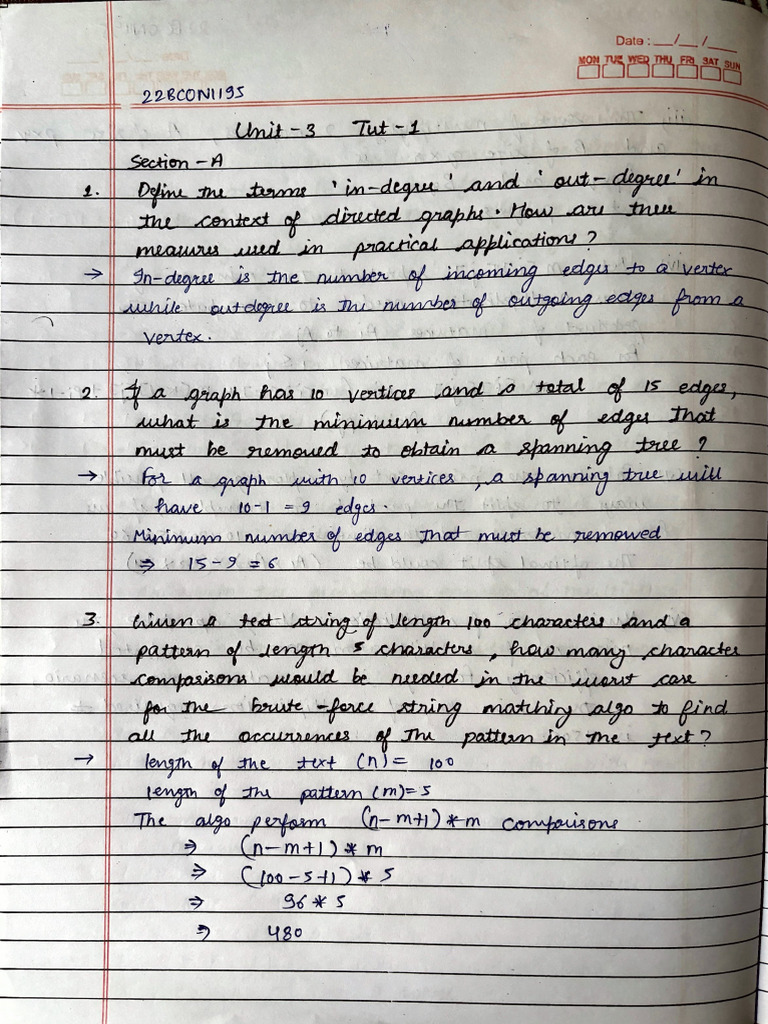 Date : __/__/__
MON TUE WED THU FRI SAT SUN
22BCON1195
Unit - 3 Tut - 1
Section - A
1. Define the terms 'in-degree' and 'out-degree' in
the context of directed graphs. How are these
measures used in practical applications?
→ In-degree is the number of incoming edges to a vertex
while outdegree is the number of outgoing edges from a
vertex.
2. If a graph has 10 vertices and a total of 15 edges,
what is the minimum number of edges that
must be removed to obtain a spanning tree?
→ For a graph with 10 vertices, a spanning tree will
have 10-1 = 9 edges.
Minimum number of edges that must be removed
⇒ 15-9 = 6
3. Given a text string of length 100 characters and a
pattern of length 5 characters, how many character
comparisons would be needed in the worst case
for the brute-force string matching algo to find
all the occurrences of the pattern in the text?
→ length of the text (n) = 100
length of the pattern (m) = 5
The algo perform (n-m+1) * m comparisons
⇒ (n-m+1) * m
⇒ (100-5+1) * 5
⇒ 96 * 5
⇒ 480